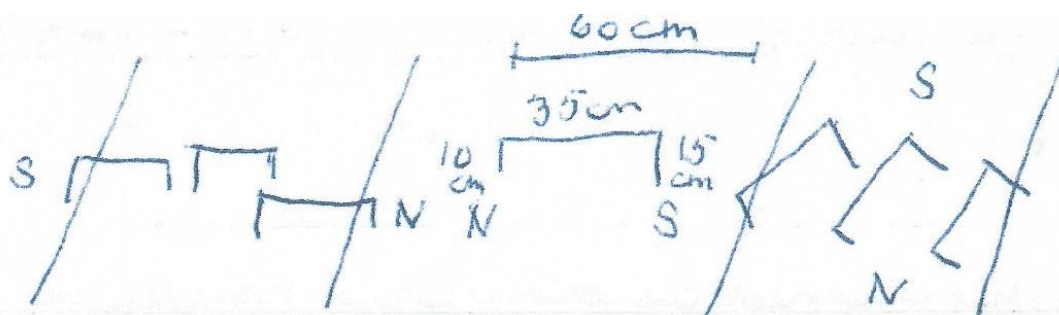 60 cm
35 cm
10 cm
15 cm
S
N
N
S
S
N